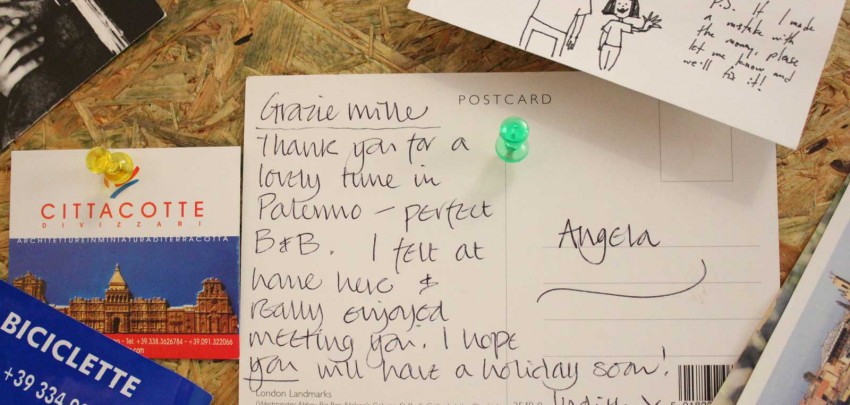 P.S. If I made
a mistake with
the money, please
let me know and
we'll fix it!
POSTCARD
Grazie mille
Thank you for a
lovely time in
Palermo – perfect
B&B. I felt at
home here &
really enjoyed
meeting you. I hope
you will have a holiday soon!
Angela
London Landmarks
CITTACOTTE
DIVIZZARI
ARCHITETTUREINMINIATURADITERRACOTTA
Tel: +39.338.3626784 - +39.091.322066
BICICLETTE
+39 334